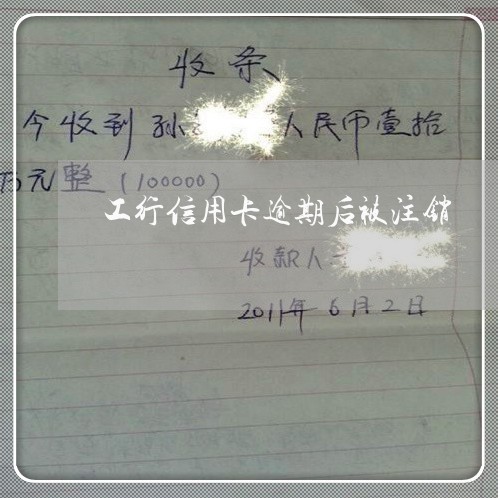 收条
今收到孙 人民币壹拾
万元整（100000）
工行信用卡逾期后被注销
收款人
2011年6月2日